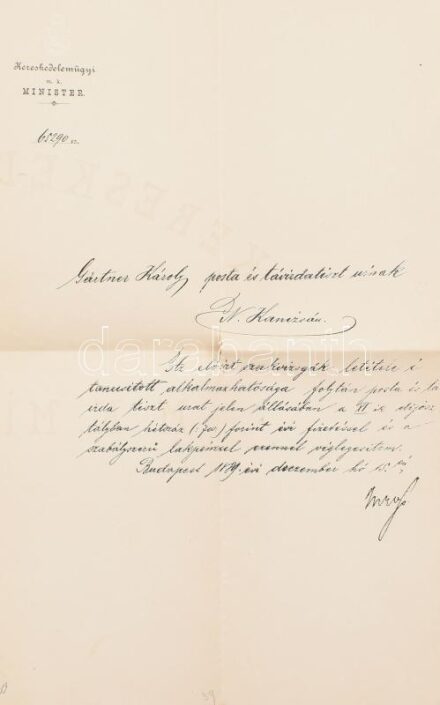 Kereskedelemügyi
m. k.
MINISTER.
65290 sz.
Gärtner Károly posta és távirdatiszt urnak
N. Kanizsán.
Az előirt szakvizsgák letétele
tanusitott alkalmazhatósága folytán posta és tá
virda tiszt urat jelen állásában a VI ik díjosz
tályban hétszáz forint évi fizetéssel és a
szabályszerű lakpénzzel ezennel véglegesitem.
Budapest 1889. évi deczember hó
darabanth